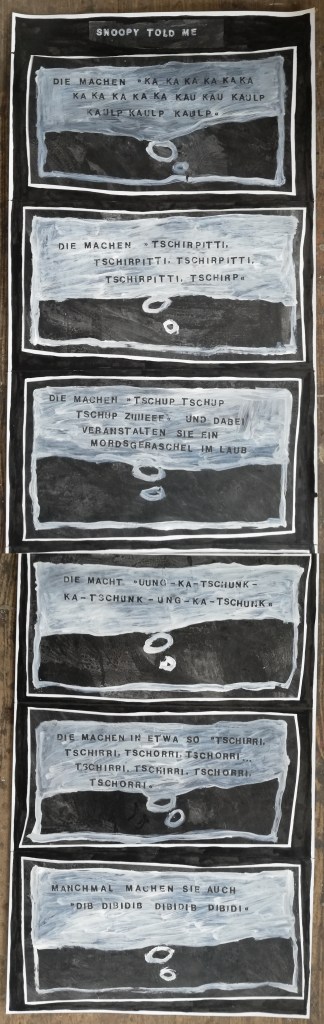 SNOOPY TOLD ME
DIE MACHEN "KA KA KA KA KA KA
KA KA KA KA KA KAU KAU KAULP
KAULP KAULP KAULP."
DIE MACHEN "TSCHIRPITTI,
TSCHIRPITTI, TSCHIRPITTI,
TSCHIRPITTI, TSCHIRP"
DIE MACHEN "TSCHUP TSCHUP
TSCHUP ZUIIEEE" UND DABEI
VERANSTALTEN SIE EIN
MORDSGERASCHEL IM LAUB
DIE MACHT "UUNG-KA-TSCHUNK-
KA-TSCHUNK-UNG-KA-TSCHUNK"
DIE MACHEN IN ETWA SO "TSCHIRRI,
TSCHIRRI, TSCHORRI, TSCHORRI...
TSCHIRRI, TSCHIRRI, TSCHORRI,
TSCHORRI"
MANCHMAL MACHEN SIE AUCH
"DIB DIBIDIB DIBIDIB DIBIDI"